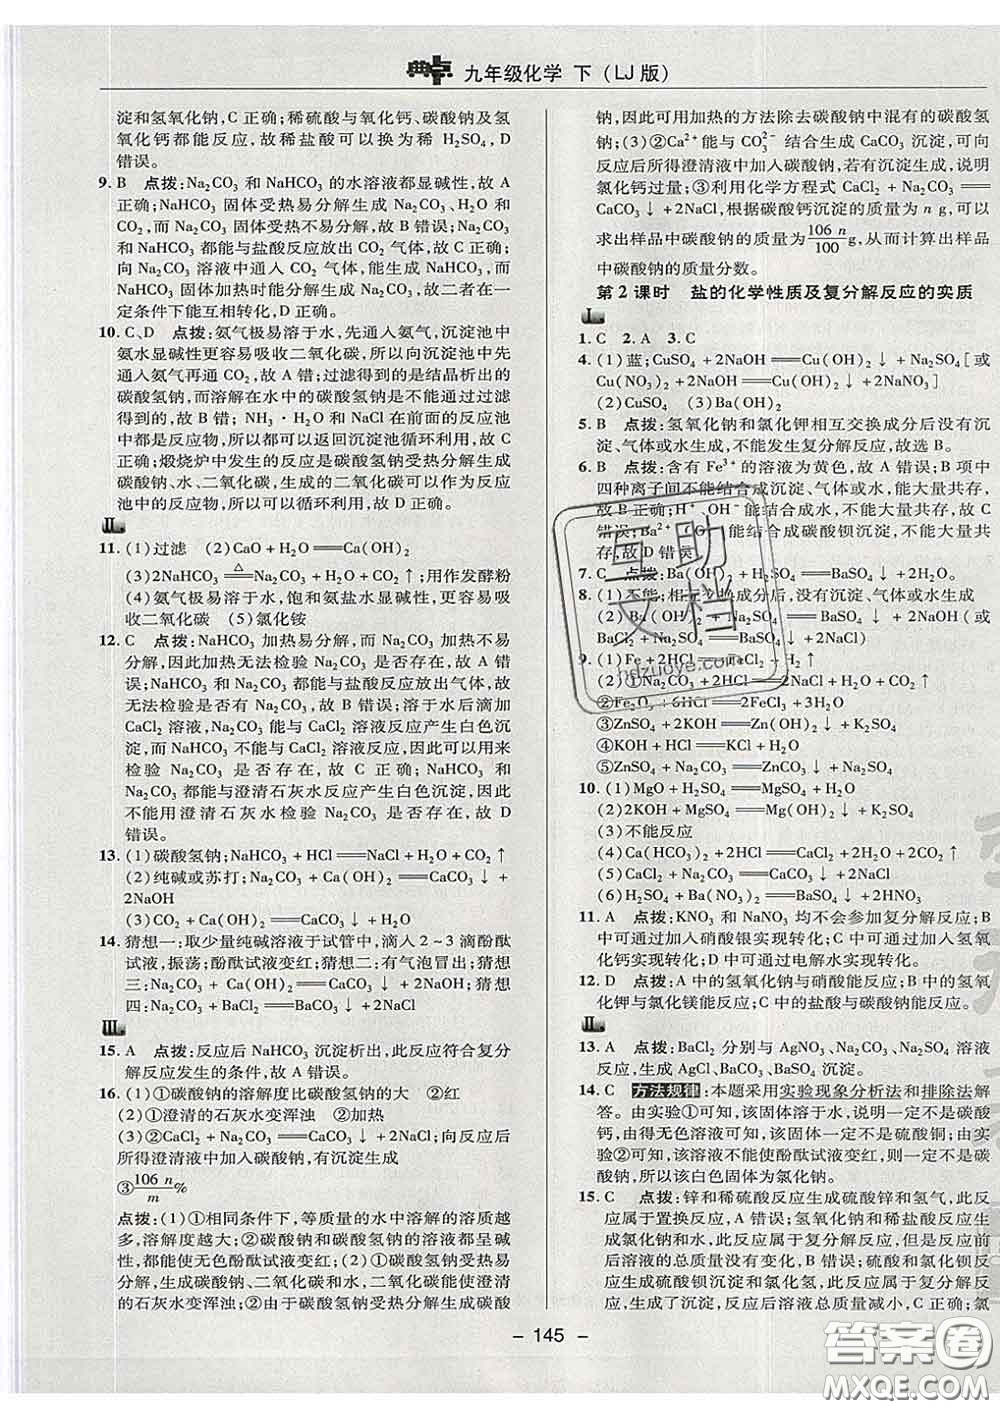 典点 九年级化学 下(LJ版)
淀和氢氧化钠,C正确;稀硫酸与氧化钙、碳酸钠及氢
氧化钙都能反应,故稀盐酸可以换为稀 H₂SO₄,D
错误。
9. B 点拨:Na₂CO₃ 和 NaHCO₃ 的水溶液都显碱性,故 A
正确;NaHCO₃ 固体受热易分解生成 Na₂CO₃、H₂O 和
CO₂,而 Na₂CO₃ 固体受热不易分解,故 B 错误;Na₂CO₃
和 NaHCO₃ 都能与盐酸反应放出 CO₂ 气体,故 C 正确;
向 Na₂CO₃ 溶液中通入 CO₂ 气体,能生成 NaHCO₃,而
NaHCO₃ 固体加热时能分解生成 Na₂CO₃,故二者在一
定条件下能互相转化,D正确。
10. C、D 点拨:氨气极易溶于水,先通入氨气,沉淀池中
氨水显碱性更容易吸收二氧化碳,所以向沉淀池中先
通入氨气再通 CO₂,故 A 错;过滤得到的是结晶析出的
碳酸氢钠,而溶解在水中的碳酸氢钠是不能通过过滤
得到的,故 B 错;NH₃·H₂O 和 NaCl 在前面的反应池
中都是反应物,所以都可以返回沉淀池循环利用,故 C
正确;煅烧炉中发生的反应是碳酸氢钠受热分解生成
碳酸钠、水、二氧化碳,生成的二氧化碳可以作为反应
池中的反应物,所以可以循环利用,故 D 正确。
Ⅱ.
11. (1)过滤 (2)CaO+H₂O══Ca(OH)₂
(3)2NaHCO₃ ══△ Na₂CO₃+H₂O+CO₂↑;用作发酵粉
(4)氨气极易溶于水,饱和氨盐水显碱性,更容易吸
收二氧化碳 (5)氯化铵
12. C 点拨:NaHCO₃ 加热易分解,而 Na₂CO₃ 加热不易
分解,因此加热无法检验 Na₂CO₃ 是否存在,故 A 错
误;NaHCO₃ 和 Na₂CO₃ 都能与盐酸反应放出气体,故
无法检验是否有 Na₂CO₃,故 B 错误;溶于水后滴加
CaCl₂ 溶液,Na₂CO₃ 能与 CaCl₂ 溶液反应产生白色沉
淀,而 NaHCO₃ 不能与 CaCl₂ 溶液反应,因此可以用来
检验 Na₂CO₃ 是否存在,故 C 正确;NaHCO₃ 和
Na₂CO₃ 都能与澄清石灰水反应产生白色沉淀,因此
不能用澄清石灰水检验 Na₂CO₃ 是否存在,故 D
错误。
13. (1)碳酸氢钠;NaHCO₃+HCl══NaCl+H₂O+CO₂↑
(2)纯碱或苏打;Na₂CO₃+Ca(OH)₂══CaCO₃↓+
2NaOH
(3)CO₂+Ca(OH)₂══CaCO₃↓+H₂O
14. 猜想一:取少量纯碱溶液于试管中,滴入 2~3 滴酚酞
试液,振荡;酚酞试液变红;猜想二:有气泡冒出;猜想
三:Na₂CO₃+Ca(OH)₂══CaCO₃↓+2NaOH;猜想
四:Na₂CO₃+BaCl₂══BaCO₃↓+2NaCl
Ⅲ.
15. A 点拨:反应后 NaHCO₃ 沉淀析出,此反应符合复分
解反应发生的条件,故 A 错误。
16. (1)①碳酸钠的溶解度比碳酸氢钠的大 ②红
(2)①澄清的石灰水变浑浊 ②加热
(3)②CaCl₂+Na₂CO₃══CaCO₃↓+2NaCl;向反应后
所得澄清液中加入碳酸钠,有沉淀生成
③106 n/m %
点拨:(1)①相同条件下,等质量的水中溶解的溶质越
多,溶解度越大;②碳酸钠和碳酸氢钠的溶液都显碱
性,都能使无色酚酞试液变红;(2)①碳酸氢钠受热易
分解,生成碳酸钠、二氧化碳和水,二氧化碳能使澄清
的石灰水变浑浊;②由于碳酸氢钠受热分解生成碳酸
钠,因此可用加热的方法除去碳酸钠中混有的碳酸氢
钠;(3)②Ca²⁺能与 CO₃²⁻ 结合生成 CaCO₃ 沉淀,可向
反应后所得澄清液中加入碳酸钠,若有沉淀生成,说明
氯化钙过量;③利用化学方程式 CaCl₂+Na₂CO₃══
CaCO₃↓+2NaCl,根据碳酸钙沉淀的质量为 n g,可以
求出样品中碳酸钠的质量为 106 n/100 g,从而计算出样品
中碳酸钠的质量分数。
第2课时 盐的化学性质及复分解反应的实质
Ⅰ.
1. C 2. A 3. C
4. (1)蓝;CuSO₄+2NaOH══Cu(OH)₂↓+Na₂SO₄[或
Cu(NO₃)₂+2NaOH══Cu(OH)₂↓+2NaNO₃]
(2)CuSO₄ (3)Ba(OH)₂
5. B 点拨:氢氧化钠和氯化钾相互交换成分后没有沉
淀、气体或水生成,不能发生复分解反应,故选 B。
6. B 点拨:含有 Fe³⁺的溶液为黄色,故 A 错误;B 项中
四种离子间不能结合成沉淀、气体或水,能大量共存,
故 B 正确;H⁺、OH⁻能结合成水,不能大量共存,故 C
错误;Ba²⁺、CO₃²⁻能结合生成碳酸钡沉淀,不能大量共
存,故 D 错误。
7. C 点拨:Ba(OH)₂+H₂SO₄══BaSO₄↓+2H₂O
8. (1)不能;相互交换成分后,没有沉淀、气体或水生成
(2)Ba(OH)₂+H₂SO₄══BaSO₄↓+2H₂O(或
BaCl₂+Na₂SO₄══BaSO₄↓+2NaCl)
9. (1)Fe+2HCl══FeCl₂+H₂↑
(2)①Na₂CO₃+2HCl══2NaCl+H₂O+CO₂↑
②Fe₂O₃+6HCl══2FeCl₃+3H₂O
③ZnSO₄+2KOH══Zn(OH)₂↓+K₂SO₄
④KOH+HCl══KCl+H₂O
⑤ZnSO₄+Na₂CO₃══ZnCO₃↓+Na₂SO₄
10. (1)MgO+H₂SO₄══MgSO₄+H₂O
(2)2KOH+MgSO₄══Mg(OH)₂↓+K₂SO₄
(3)不能反应
(4)Ca(HCO₃)₂+2HCl══CaCl₂+2H₂O+2CO₂↑
(5)CaCl₂+Na₂CO₃══CaCO₃↓+2NaCl
(6)H₂SO₄+Ba(NO₃)₂══BaSO₄↓+2HNO₃
11. A 点拨:KNO₃ 和 NaNO₃ 均不会参加复分解反应;B
中可通过加入硝酸银实现转化;C中可通过加入氢氧
化钙实现转化;D中可通过电解水实现转化。
12. D 点拨:A 中的氢氧化钠与硝酸能反应;B 中的氢氧
化钾与氯化镁能反应;C 中的盐酸与碳酸钠能反应。
Ⅱ.
13. A 点拨:BaCl₂ 分别与 AgNO₃、Na₂CO₃、Na₂SO₄ 溶液
反应,生成 AgCl、BaCO₃、BaSO₄ 沉淀。
14. C 方法规律:本题采用实验现象分析法和排除法解
答。由实验①可知,该固体溶于水,说明一定不是碳酸
钙,由得无色溶液可知,该固体一定不是硫酸铜;由实
验②可知,该溶液不能使酚酞试液变红,则一定不是碳
酸钠,所以该白色固体为氯化钠。
15. C 点拨:锌和稀硫酸反应生成硫酸锌和氢气,此反
应属于置换反应,A 错误;氢氧化钠和稀盐酸反应生
成氯化钠和水,此反应属于复分解反应,但是反应前
后溶液的总质量没有变化,B 错误;硫酸和氯化钡反
应生成硫酸钡沉淀和氯化氢,此反应属于复分解反
应,生成了沉淀,反应后溶液总质量减小,C 正确;氯
- 145 -
互助文档
hdzuoye.com
答案圈
MXQE.COM